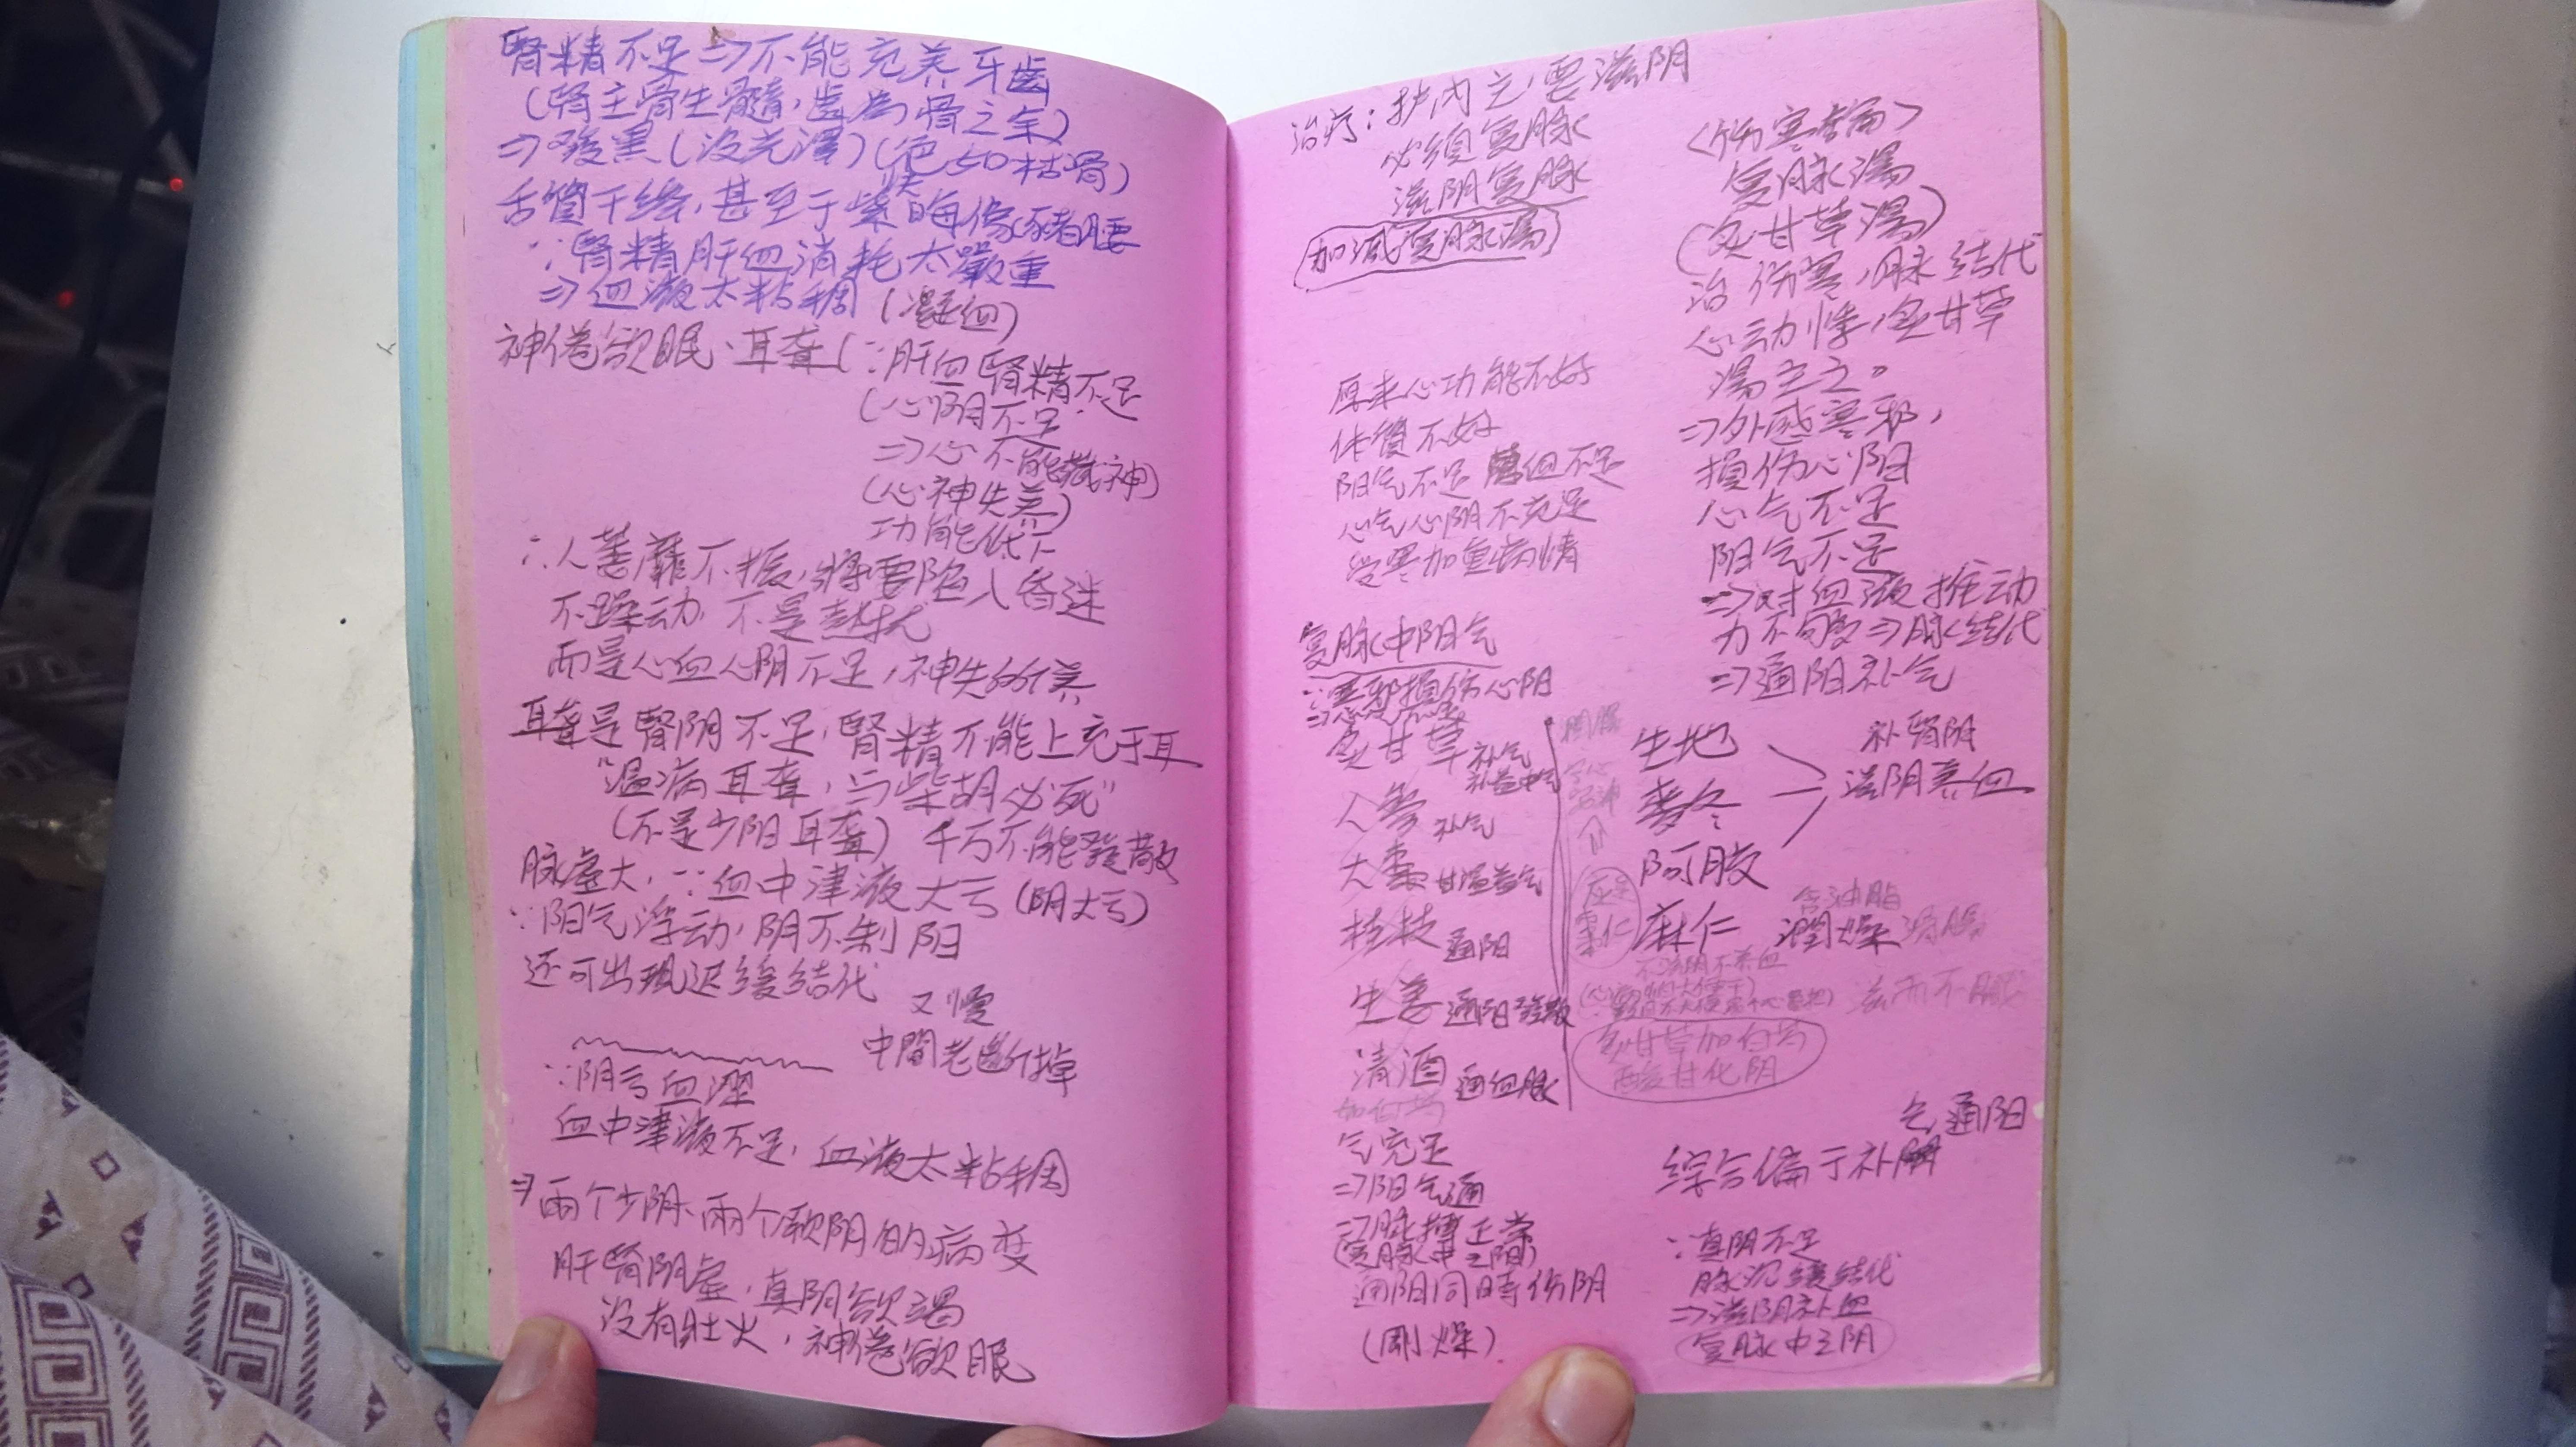 腎精不足⇒不能充养牙齒
(腎主骨生髓，齒为骨之余)
⇒發黑(没光澤)(色如枯骨)
舌質干绛，甚至于紫晦像豬腰
∵腎精肝血消耗太嚴重
⇒血液太粘稠(凝血)
神倦欲眠、耳聋(∵肝血腎精不足
(心阴不足
⇒心不能藏神)
(心神失养)
功能低下
∴人萎靡不振，將要陷入昏迷
不躁动，不是熱扰
而是心血心阴不足，神失所养
耳聋是腎阴不足，腎精不能上充于耳
“溫病耳聋，与柴胡必死”
(不是少阳耳聋) 千万不能發散
脉虚大，∵血中津液大亏(阴大亏)
∵阳气浮动，阴不制阳
还可出現迟缓结代
又慢
中間老斷掉
∵阴亏血澀
血中津液不足，血液太粘稠
⇒兩个少阴、兩个厥阴的病变
肝腎阴虚，真阴欲竭
没有壮火，神倦欲眠
治疗：护内之，要滋阴
必须复脉
滋阴复脉
加减复脉湯
原来心功能不好
体質不好
阳气不足 血不足
心气心阴不充足
受寒加重病情
复脉中阳气
∵寒邪損伤心阳
炙甘草 补气
补益中气
人参 补气
大棗 甘溫益气
桂枝 通阳
生姜 通阳發散
清酒 通血脉
气充足
⇒阳气通
⇒脉搏正常
(复脉中之阳)
通阳同時伤阴
(剛燥)
<伤寒論>
复脉湯
(炙甘草湯)
治伤寒，脉结代
心动悸，炙甘草
湯主之。
⇒外感寒邪，
損伤心阳
心气不足
阳气不足
⇒对血液推动
力不夠⇒脉结代
⇒通阳补气
生地
麥冬
阿胶
补腎阴
滋阴养血
应是
棗仁
麻仁 含油脂
潤燥 滑腸
不滋阴不养血
滋而不膩
炙甘草加白芍
酸甘化阴
气通阳
綜合偏于补
∵真阴不足
脉沉缓结代
⇒滋阴补血
复脉中之阴